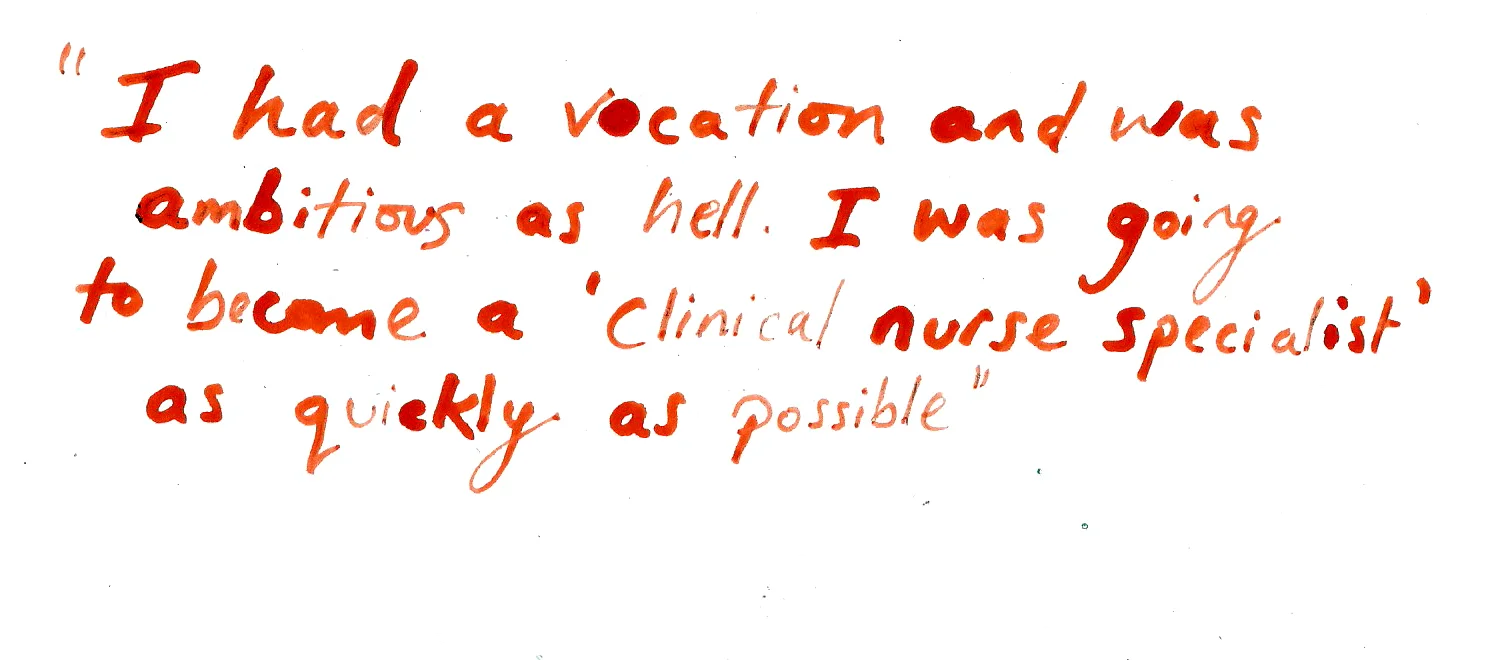 "I had a vocation and was
ambitious as hell. I was going
to become a 'clinical nurse specialist'
as quickly as possible"